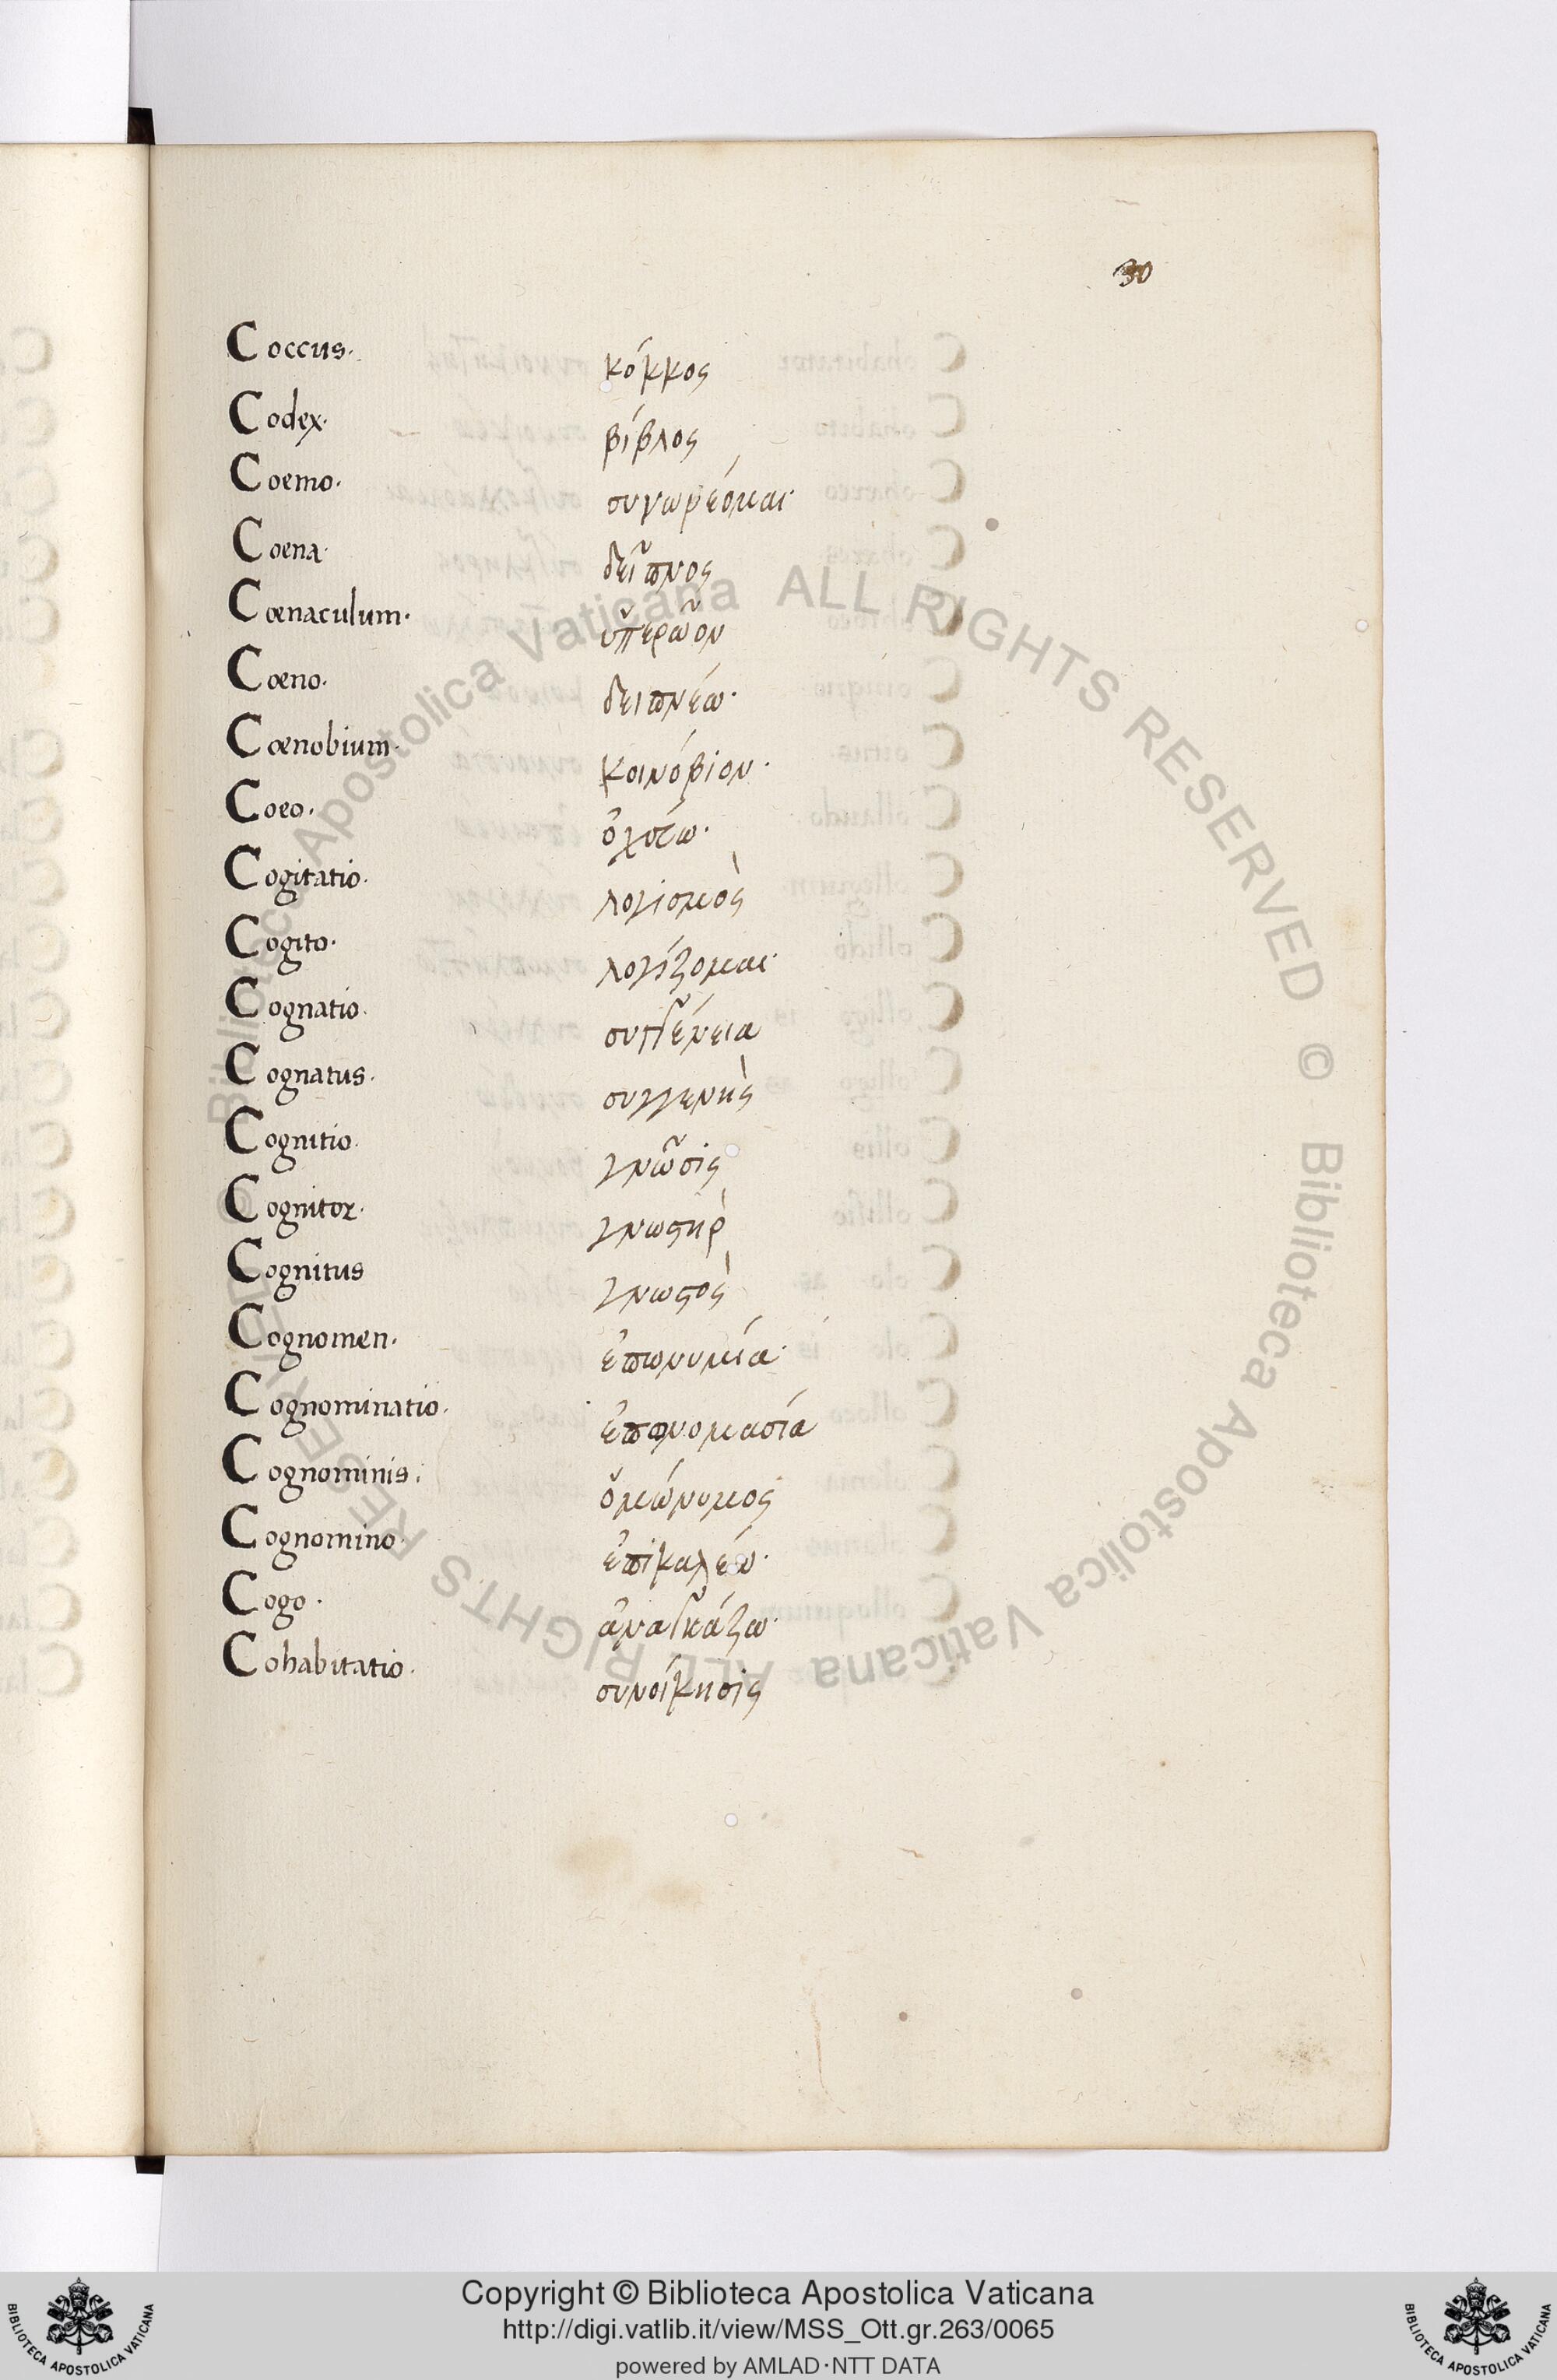 30
Coccus. κόκκος
Codex. βίβλος
Coemo. συνωρέομαι.
Coena. δεῖπνος
Cœnaculum. ὑπερῶον
Cœno. δειπνέω.
Cœnobium. κοινόβιον.
Coeo.
Cogitatio. λογισμὸς
Cogito. λογίζομαι.
Cognatio. συγγένεια
Cognatus. συγγενὴς
Cognitio. γνῶσις
Cognitor. γνωστὴρ
Cognitus γνωστὸς
Cognomen. ἐπωνυμία.
Cognominatio. ἐπονομασία
Cognominis. ὁμώνυμος
Cognomino. ἐπικαλέω.
Cogo. ἀναγκάζω.
Cohabitatio. συνοίκησις
© Biblioteca Apostolica Vaticana ALL RIGHTS RESERVED © Biblioteca Apostolica Vaticana ALL RIGHTS RESERVED
Copyright © Biblioteca Apostolica Vaticana
http://digi.vatlib.it/view/MSS_Ott.gr.263/0065
powered by AMLAD·NTT DATA
BIBLIOTECA APOSTOLICA VATICANA
BIBLIOTECA APOSTOLICA VATICANA